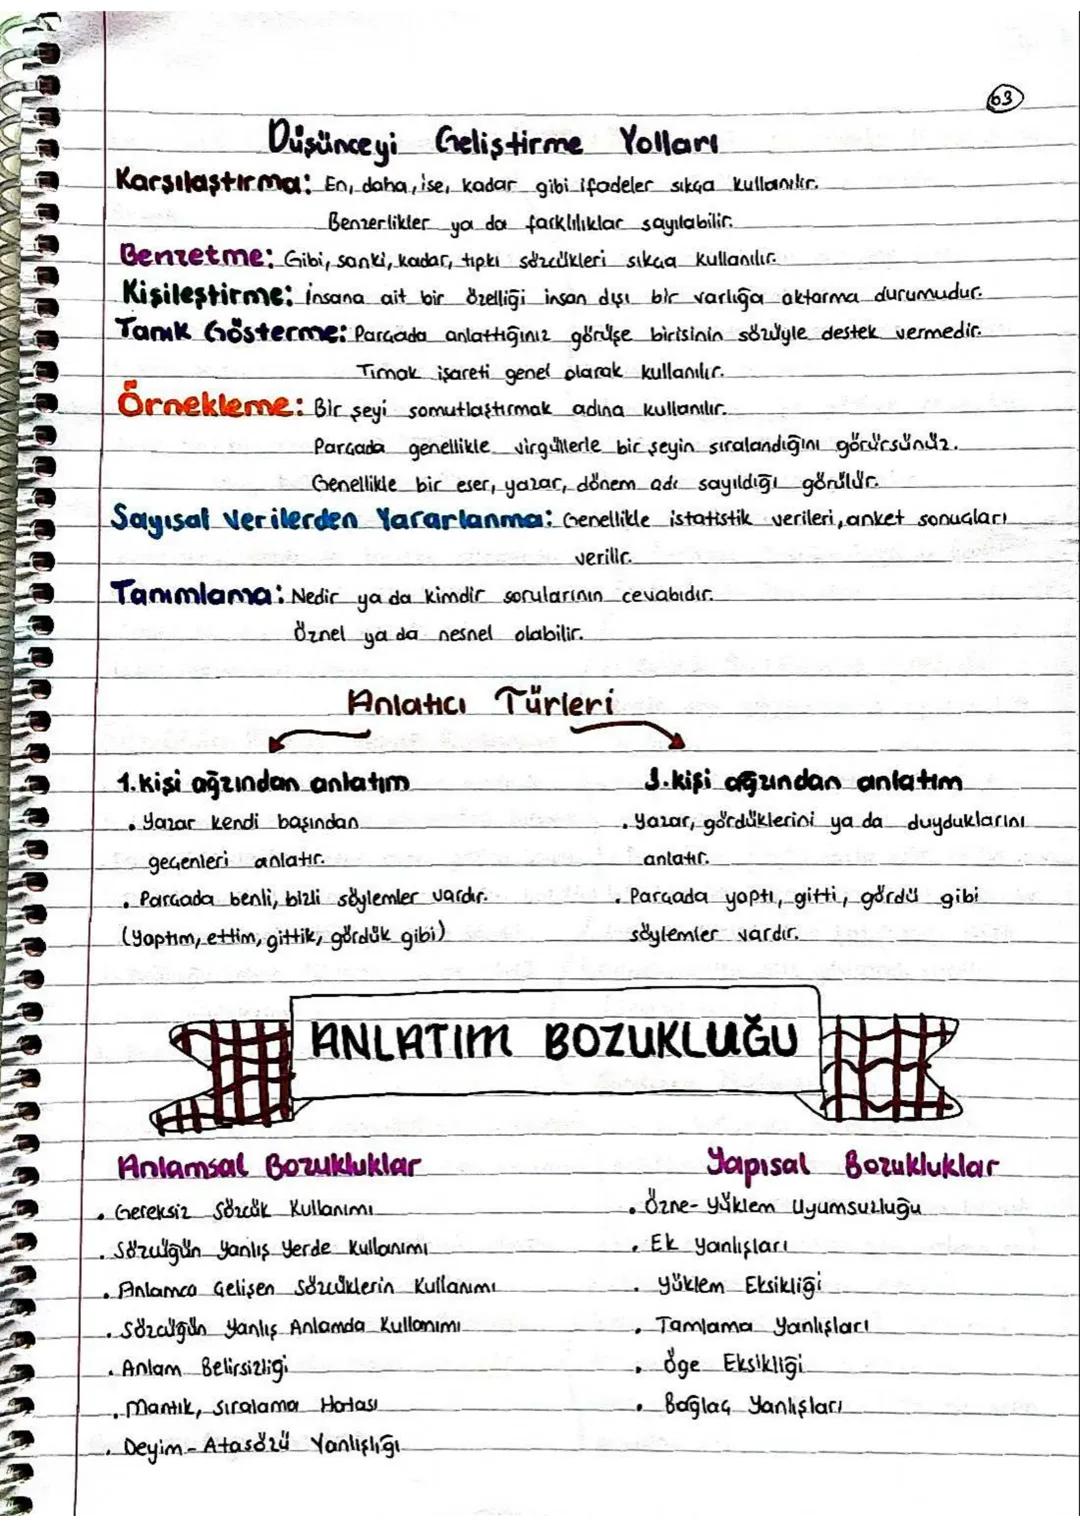 63
Düşünceyi Geliştirme Yolları
Karşılaştırma: En, daha, ise, kadar gibi ifadeler sıkça kullanılır.
Benzerlikler ya da farklılıklar sayılabilir.
Benzetme: Gibi, sanki, kadar, tıpkı sözcükleri sıkça kullanılır.
Kişileştirme: İnsana ait bir özelliği insan dışı bir varlığa aktarma durumudur.
Tanık Gösterme: Parçada anlattığınız görüşe birisinin sözüyle destek vermedir.
Tırnak işareti genel olarak kullanılır.
Örnekleme: Bir şeyi somutlaştırmak adına kullanılır.
Parçada genellikle virgüllerle bir şeyin sıralandığını görürsünüz.
Genellikle bir eser, yazar, dönem adı sayıldığı görülür.
Sayısal Verilerden Yararlanma: Genellikle istatistik verileri, anket sonuçları
verilir.
Tanımlama: Nedir ya da kimdir sorularının cevabıdır.
Öznel ya da nesnel olabilir.
Anlatıcı Türleri
1. kişi ağzından anlatım
. Yazar kendi başından
geçenleri anlatır.
. Parçada benli, bizli söylemler vardır.
(yaptım, ettim, gittik, gördük gibi)
3. kişi ağzından anlatım
. Yazar, gördüklerini ya da duyduklarını
anlatır.
. Parçada yaptı, gitti, gördü gibi
söylemler vardır.
ANLATIM BOZUKLUĞU
Anlamsal Bozukluklar
. Gereksiz Sözcük Kullanımı
. Sözcüğün Yanlış Yerde Kullanımı
. Anlamca Çelişen Sözcüklerin Kullanımı
. Sözcüğün Yanlış Anlamda Kullanımı
. Anlam Belirsizliği
. Mantık, sıralama Hatası
. Deyim - Atasözü Yanlışlığı
Yapısal Bozukluklar
. Özne - Yüklem Uyumsuzluğu
. Ek Yanlışları
. Yüklem Eksikliği
. Tamlama Yanlışları
. Öge Eksikliği
. Bağlaç Yanlışları